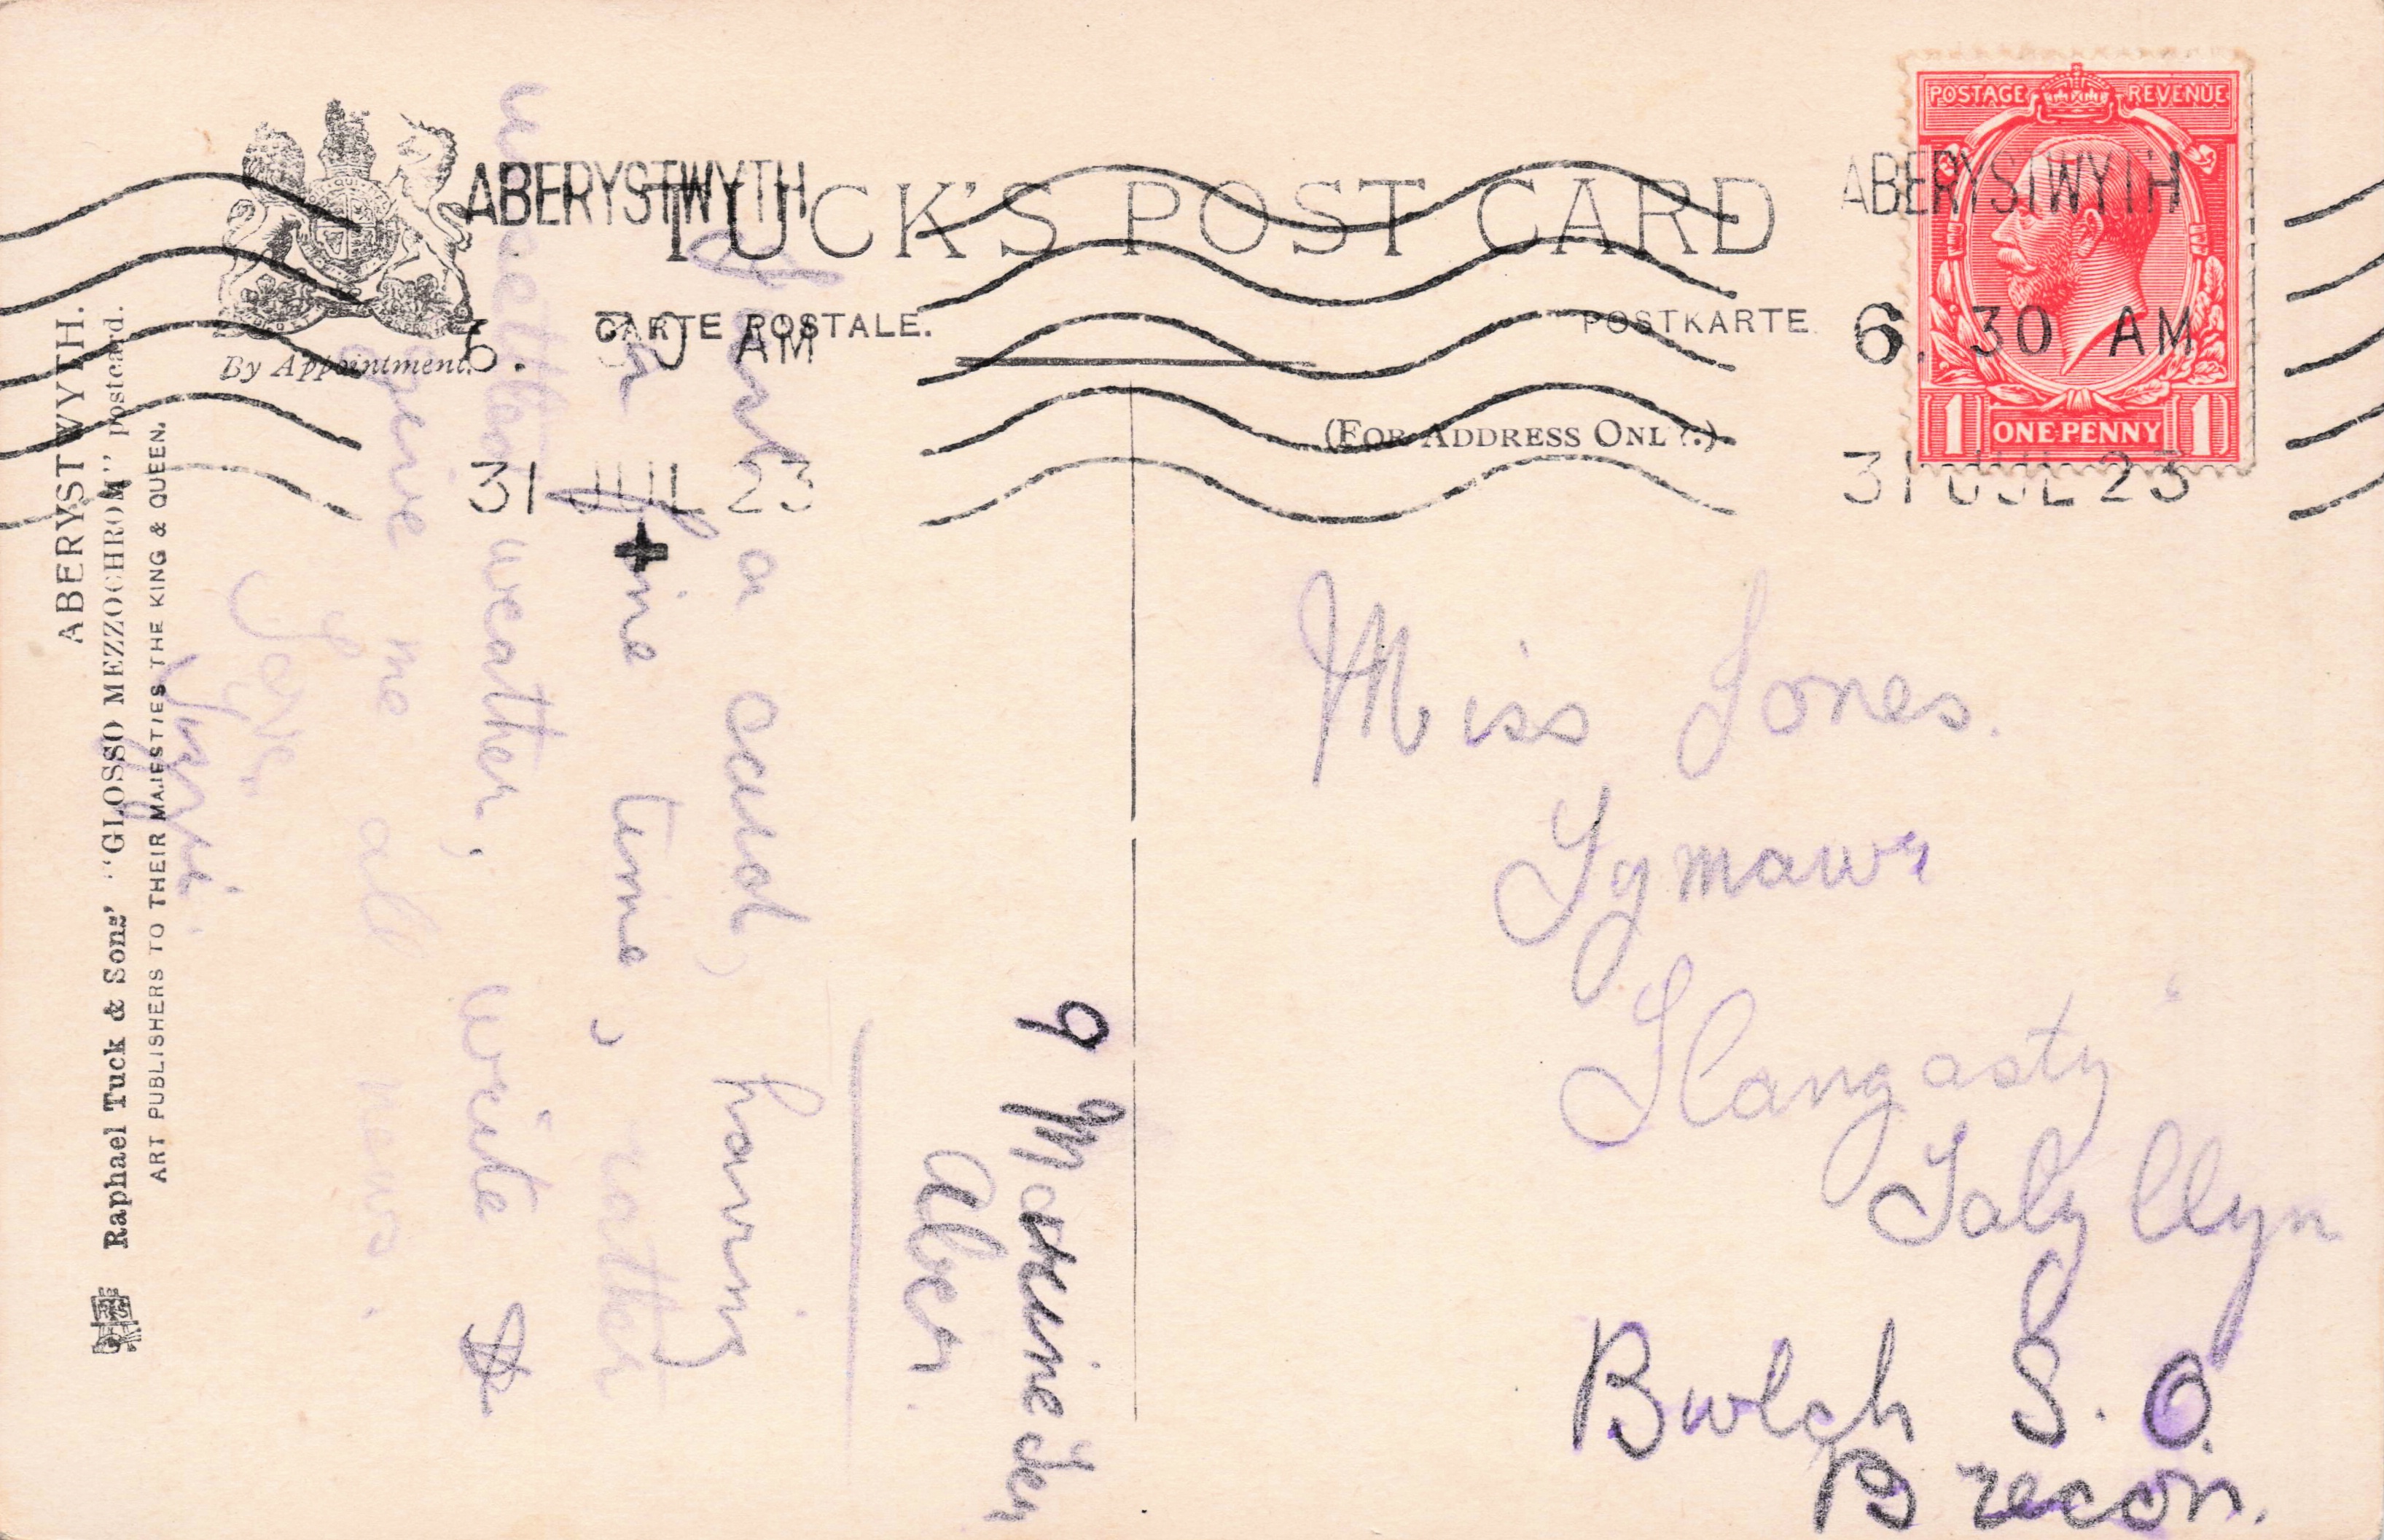 TUCK'S POST CARD
CARTE POSTALE. POSTKARTE.
By Appointment.
(FOR ADDRESS ONLY.)
ABERYSTWYTH
6. 30 AM
31 JUL 23
ABERYSTWYTH
6. 30 AM
31 JUL 23
POSTAGE REVENUE
1 ONE PENNY 1
ABERYSTWYTH.
Raphael Tuck & Sons' "GLOSSO MEZZOCHROM" postcard.
ART PUBLISHERS TO THEIR MAJESTIES THE KING & QUEEN.
9 Marine
Aber.
a card, having
a fine time, rather
weather, write &
give me all news.
Love
Miss Jones.
Tymawr
Llangasty
Talyllyn
Bwlch S. O.
Brecon.